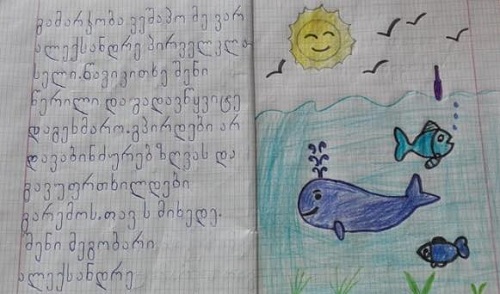 გამარჯობა ვეშაპო მე ვარ
ალექსანდრე პირველკლა
სელი. წავიკითხე შენი
წერილი და გადავწყვიტე
დაგეხმარო. გპირდები არ
დავაბინძურებ ზღვას და
გავუფრთხილდები
გარემოს. თავს მიხედე.
შენი მეგობარი
ალექსანდრე